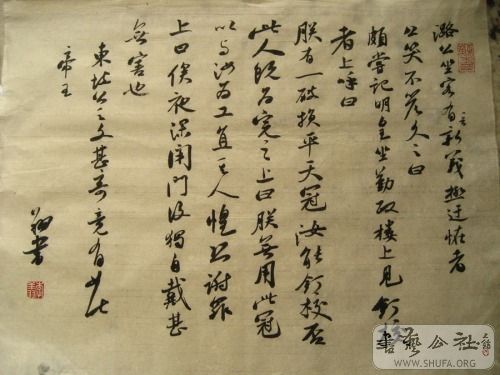 潞公坐客有言新義極迂怪者
公笑不答久之曰
頗嘗記明皇坐勤政樓上見釘校
者上呼曰
朕有一破損平天冠汝能釘校否
此人既为完之上曰朕無用此冠
以与汝为工直其人惶恐謝罪
上曰俟夜深閉門後獨自戴甚
無害也
東坡公之文甚奇竟有如此
帝王
書
書藝公社
WWW.SHUFA.ORG